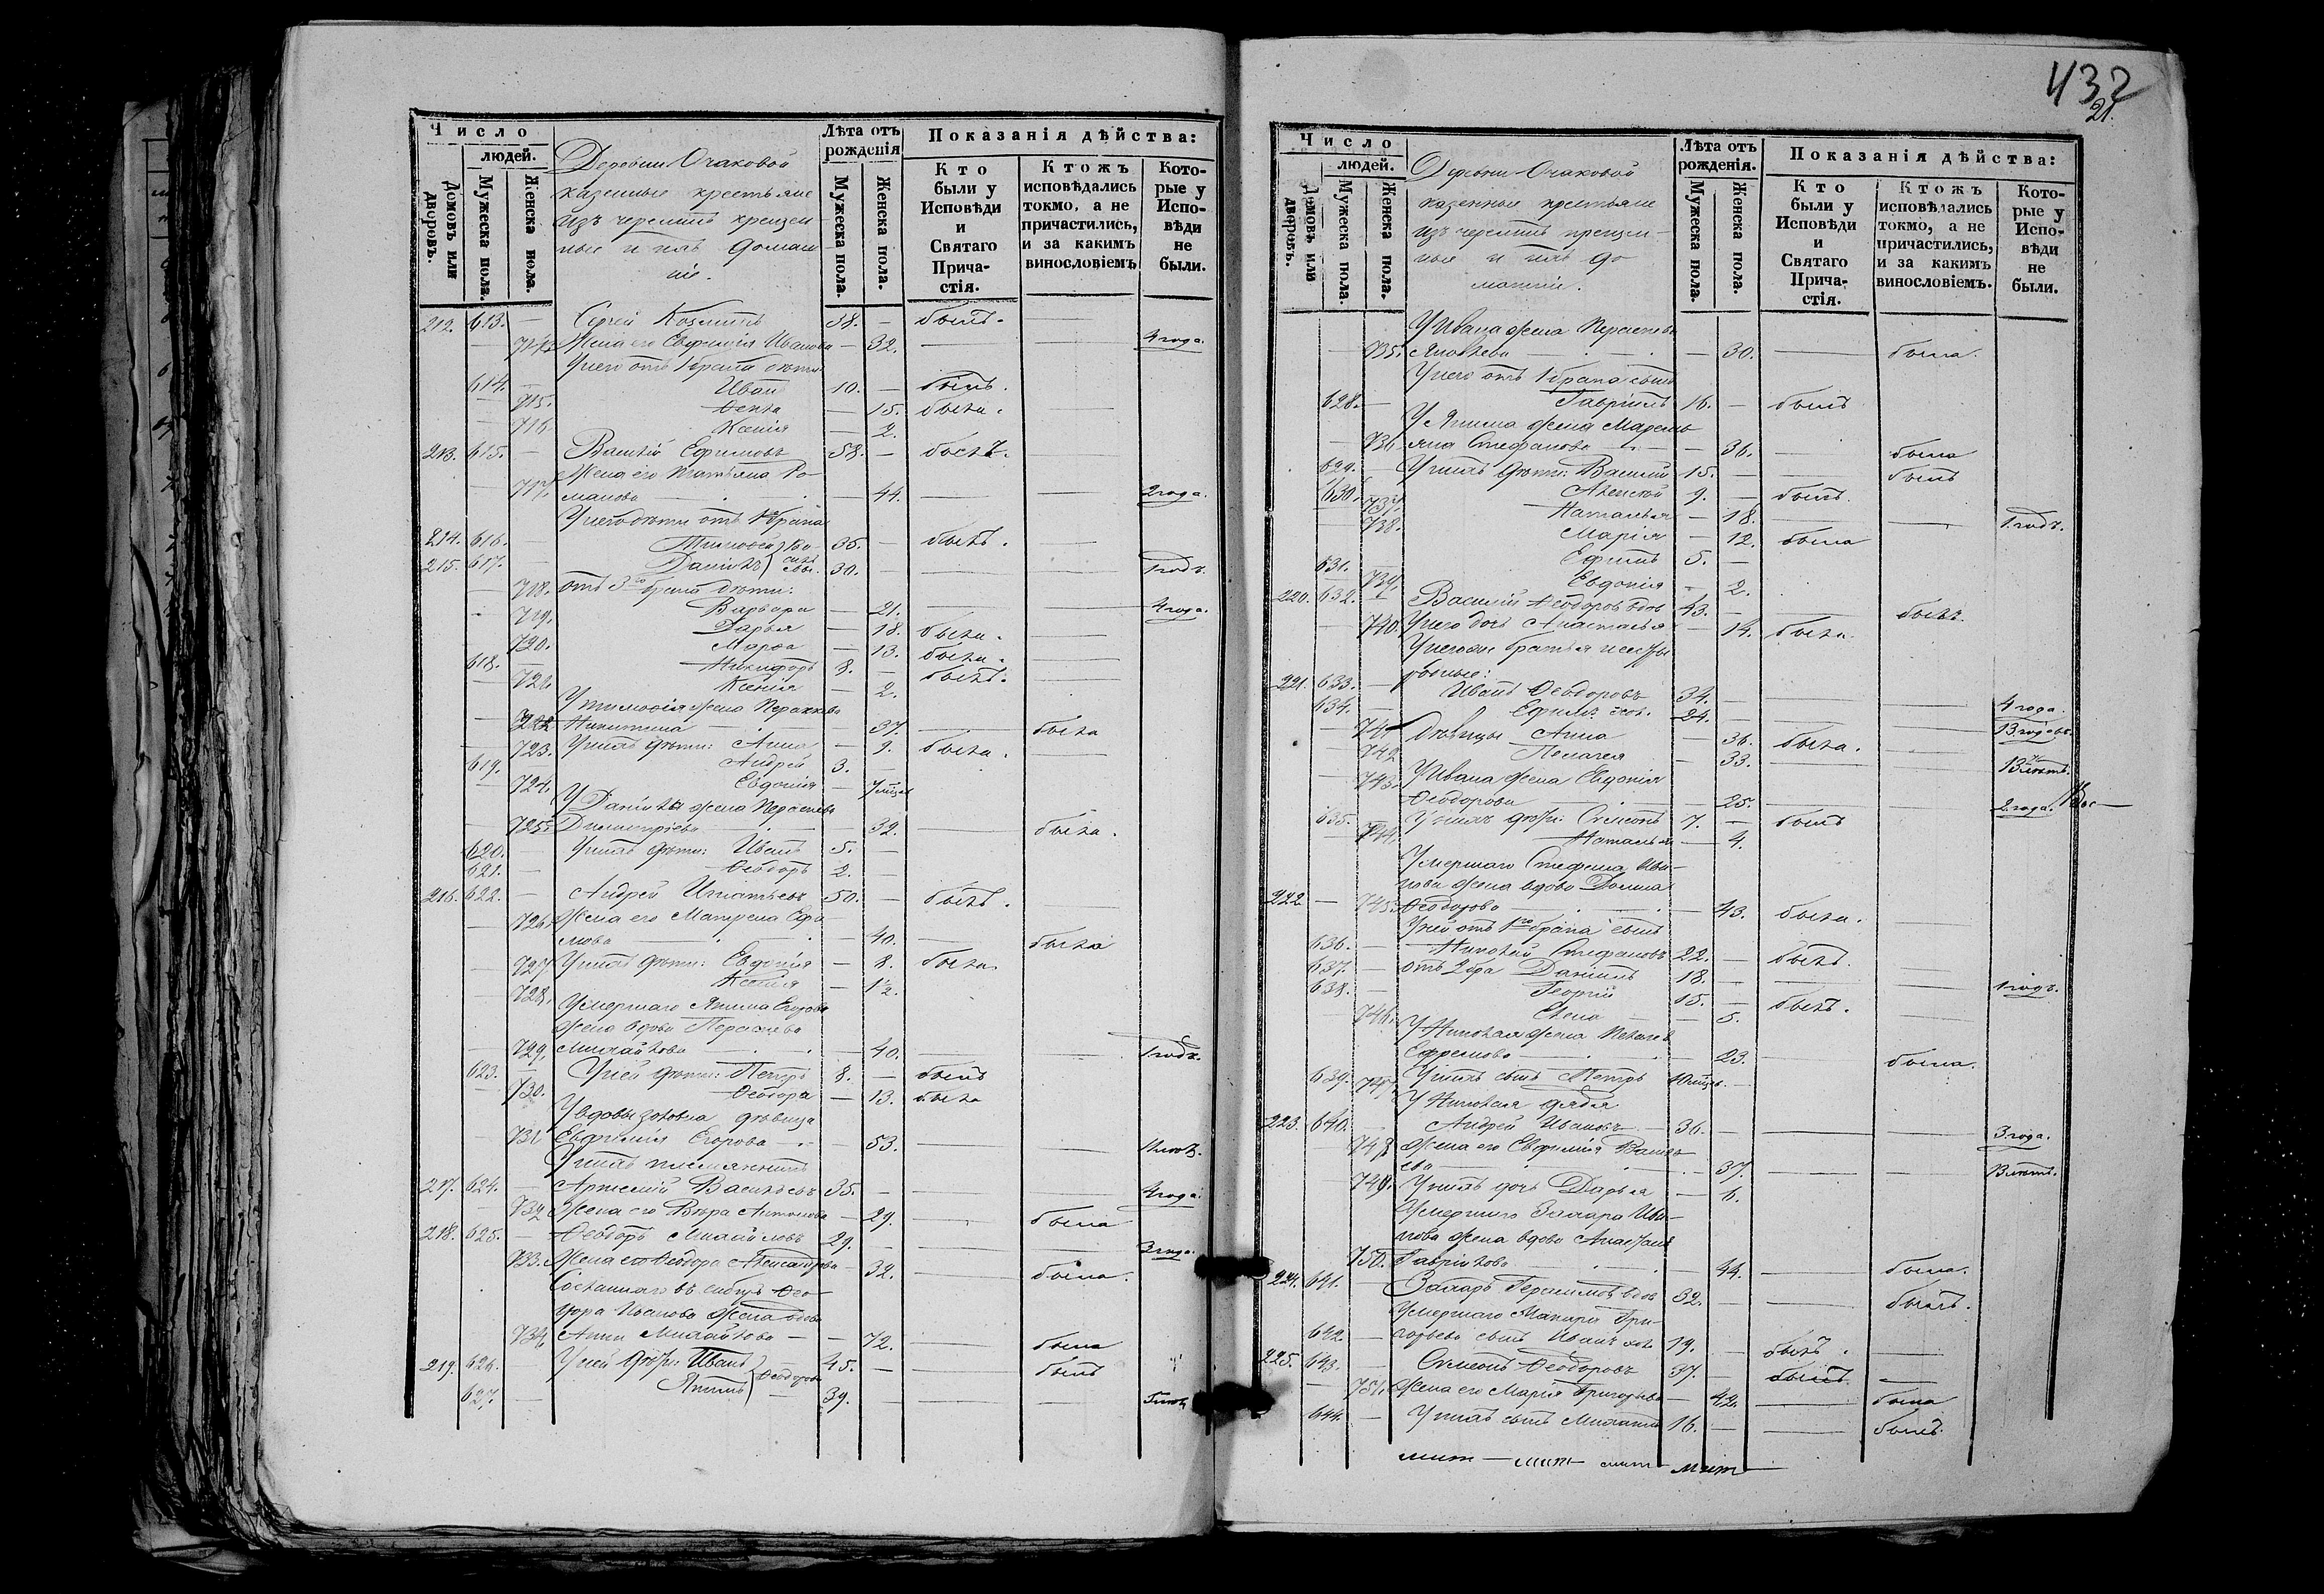 Число
людей.
Домовъ или дворовъ.
Мужеска пола.
Женска пола.
Деревни Очаковой
казенные крестьяне
изъ черемисъ крещен-
ные и ихъ домаш-
ніе.
Лѣта отъ рожденія
Мужеска пола.
Женска пола.
Показанія дѣйства:
Кто были у Исповѣди и Святаго Прича-стія.
Ктожъ исповѣдались токмо, а не причастились, и за какимъ винословіемъ
Кото-рые у Испо-вѣди не были.
212. 613. — Сергій Козминъ 38. — былъ. —
Жена его Евфимія Иванова — 32. — — 4 года.
У него отъ 1 брака дѣти:
614. — Иванъ 10. — былъ. —
715. Фекла — 15. была. —
716. Ксенія — 2.
213. 615. — Василій Ефимовъ 58. — былъ.
717. Жена его Татьяна Ро-
манова — 44. — — 2 года.
У него дѣти отъ 1 брака
214. 616. — Тимофей 35. — былъ. —
215. 617. — Даніилъ 30. — — — 1 годъ.
718. отъ 3го брака дѣти:
Варвара — 21. — — 4 года.
719. Дарья — 18. была. —
720. Марфа — 13. была. —
618. — Никифоръ 8. — былъ. —
721. Ксенія — 2.
У Тимофея жена Параскева
722 Никитина — 37. — была
723. У нихъ дѣти: Анна — 9. была. —
619. Андрей 3. —
724. Евдокія —
У Даніила жена Параскева
725. Димитріева — 32. — была.
620. — У нихъ дѣти: Иванъ 5. —
621. — Ѳеодоръ 2. —
216. 622. — Андрей Игнатьевъ 50. — былъ. —
726. Жена его Матрена Ефи-
мова — 40. — была
727 У нихъ дѣти: Евдокія — 8. была.
728. Ксенія — 1½.
Умершаго Якима Егорова
жена вдова Параскева
729. Михайлова — 40. — — 1 годъ.
623. — У ней дѣти: Петръ 8. — былъ
730. Ѳеодора — 13. была
У вдовы золовка дѣвица
731 Евфимія Егорова — 53. —
У нихъ племянникъ
217. 624. — Артемій Васильевъ 35. — — — 4 года.
732 Жена его Вѣра Антонова — 29. — была
218. 625. — Ѳеодоръ Михайловъ 29. — — — 3 года.
733. Жена его Ѳеодора Александрова — 32. — была.
Сосланнаго въ сибирь Ѳео-
дора Иванова жена вдова
734 Анна Михайлова — 72. — была
219. 626. У ней дѣти: Иванъ 45. — былъ
627. — Якимъ Ѳеодоровы 39. — — —
432
21.
Число
людей.
Домовъ или дворовъ.
Мужеска пола.
Женска пола.
Деревни Очаковой
казенные крестьяне
изъ черемисъ крещен-
ные и ихъ до
машніе.
Лѣта отъ рожденія.
Мужеска пола.
Женска пола.
Показанія дѣйства:
Кто были у Исповѣди и Святаго Прича-стія.
Ктожъ исповѣдались токмо, а не причастились, и за какимъ винословіемъ.
Кото-рые у Испо-вѣди не были.
У Ивана жена Параскева
735. Яковлева — 30. — была.
У него отъ 1 брака сынъ
628. — Гавріилъ 16. — былъ
У Якима жена Марем-
736. яна Стефанова — 36. — была
629. У нихъ дѣти: Василій 15. — былъ
630. Алексѣй 9. — былъ.
737. Наталья — 18. — — 1 годъ.
738. Марія — 12. была
631. Ефимъ 5. —
739. Евдокія — 2.
220. 632. — Василій Ѳеодоровъ вдов 43. — былъ.
740. У него дочь Анастасья — 14. была.
У него же братья и сестры
родные:
221. 633. — Иванъ Ѳеодоровъ 34. — — — 4 года.
634. — Ефимъ хол. 24. — — — 13 годовъ.
741 Дѣвицы Анна — 36. была. —
742 Пелагея — 33. — — 13 лѣтъ.
743. У Ивана жена Евдокія
Ѳеодорова — 25. — — 2 года.
635. У нихъ дѣти: Симеонъ 7. — былъ
744. Наталья — 4.
Умершаго Стефана Ива-
нова жена вдова Домна
222 — 745. Ѳеодорова — 43. была. —
У ней отъ 1го брака сынъ
636. — Николай Стефановъ 22. — былъ. —
637. — отъ 2 бра Даніилъ 18. — — — 1 годъ.
638. — Георгій 15. — былъ. —
746. Елена — 5.
У Николая жена Пелагея
Ефремова — 23. — была.
639. 747. У нихъ сынъ Петръ —
У Николая дядя
223. 640. — Андрей Ивановъ 36. — — — 3 года.
748 Жена его Евфимія Василь-
ева — 37. — — 13 лѣтъ.
749. У нихъ дочь Дарья — 6.
Умершаго Захара Ива-
нова жена вдова Анастасія
750. Гаврилова — 44. — была.
224. 641. — Захаръ Герасимовъ вдов 32. — — былъ.
Умершаго Макара Гри-
642 — горьева сынъ Иванъ хол 19. — былъ. —
225. 643. — Симеонъ Ѳеодоровъ 37. — былъ —
751. Жена его Марія Григорьева — 42. — была
644. — У нихъ сынъ Михаилъ 16. — — былъ.